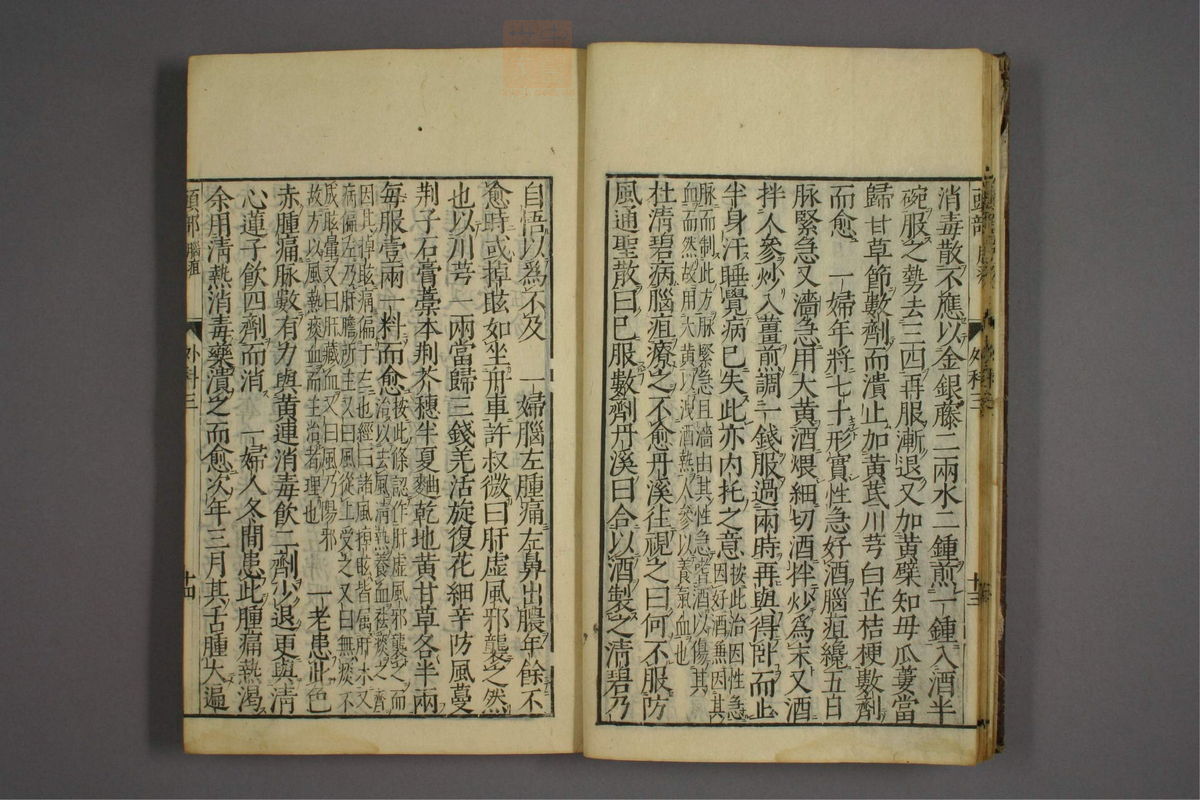 消毒散不應以金銀藤二兩水二鍾煎一鍾入酒半
碗服之勢去三四再服漸退又加黃蘗知母瓜蔞當
歸甘草節數劑而潰止加黃芪川芎白芷桔梗數劑
而愈　一婦年將七十形實性急好酒腦疽纔五日
脉緊急又濇急用大黃酒煨細切酒拌炒爲末又酒
拌人參炒入薑煎調一錢服過兩時再與得臥而上
半身汗睡覺病已失此亦內托之意按此治因性急
因好酒無因其
脉而制此方脉緊急且濇由其性急嗜酒以傷其
血而然故用大黃以洩酒熱人參以養氣血也
杜淸碧病腦疽療之不愈丹溪往視之曰何不服防
風通聖散曰已服數劑丹溪曰合以酒製之淸碧乃
頭部腦疽　外科三　十三
自悟以爲不及　一婦腦左腫痛左鼻出膿年餘不
愈時或掉眩如坐舟車許叔微曰肝虛風邪襲之然
也以川芎一兩當歸三錢羌活旋復花細辛防風蔓
荆子石膏藁本荆芥穗半夏麯乾地黃甘草各半兩
每服壹兩一料而愈按此條認作肝虛風邪襲之而
治以去風淸熱養血祛痰之齊
因其掉眩痛偏于左也經曰諸風掉眩皆屬肝木又
病偏左乃肝膽所主又曰風從上受之又曰無痰不
成眩暈又曰肝藏血又曰風乃傷邪
故方以風熱痰血而主治者理也
一老患此色
赤腫痛脉數有力與黃連消毒飮二劑少退更與淸
心蓮子飮四劑而消　一婦人冬間患此腫痛熱渴
余用淸熱消毒藥潰之而愈次年三月其舌腫大遍
頭部腦疽　外科三　十四